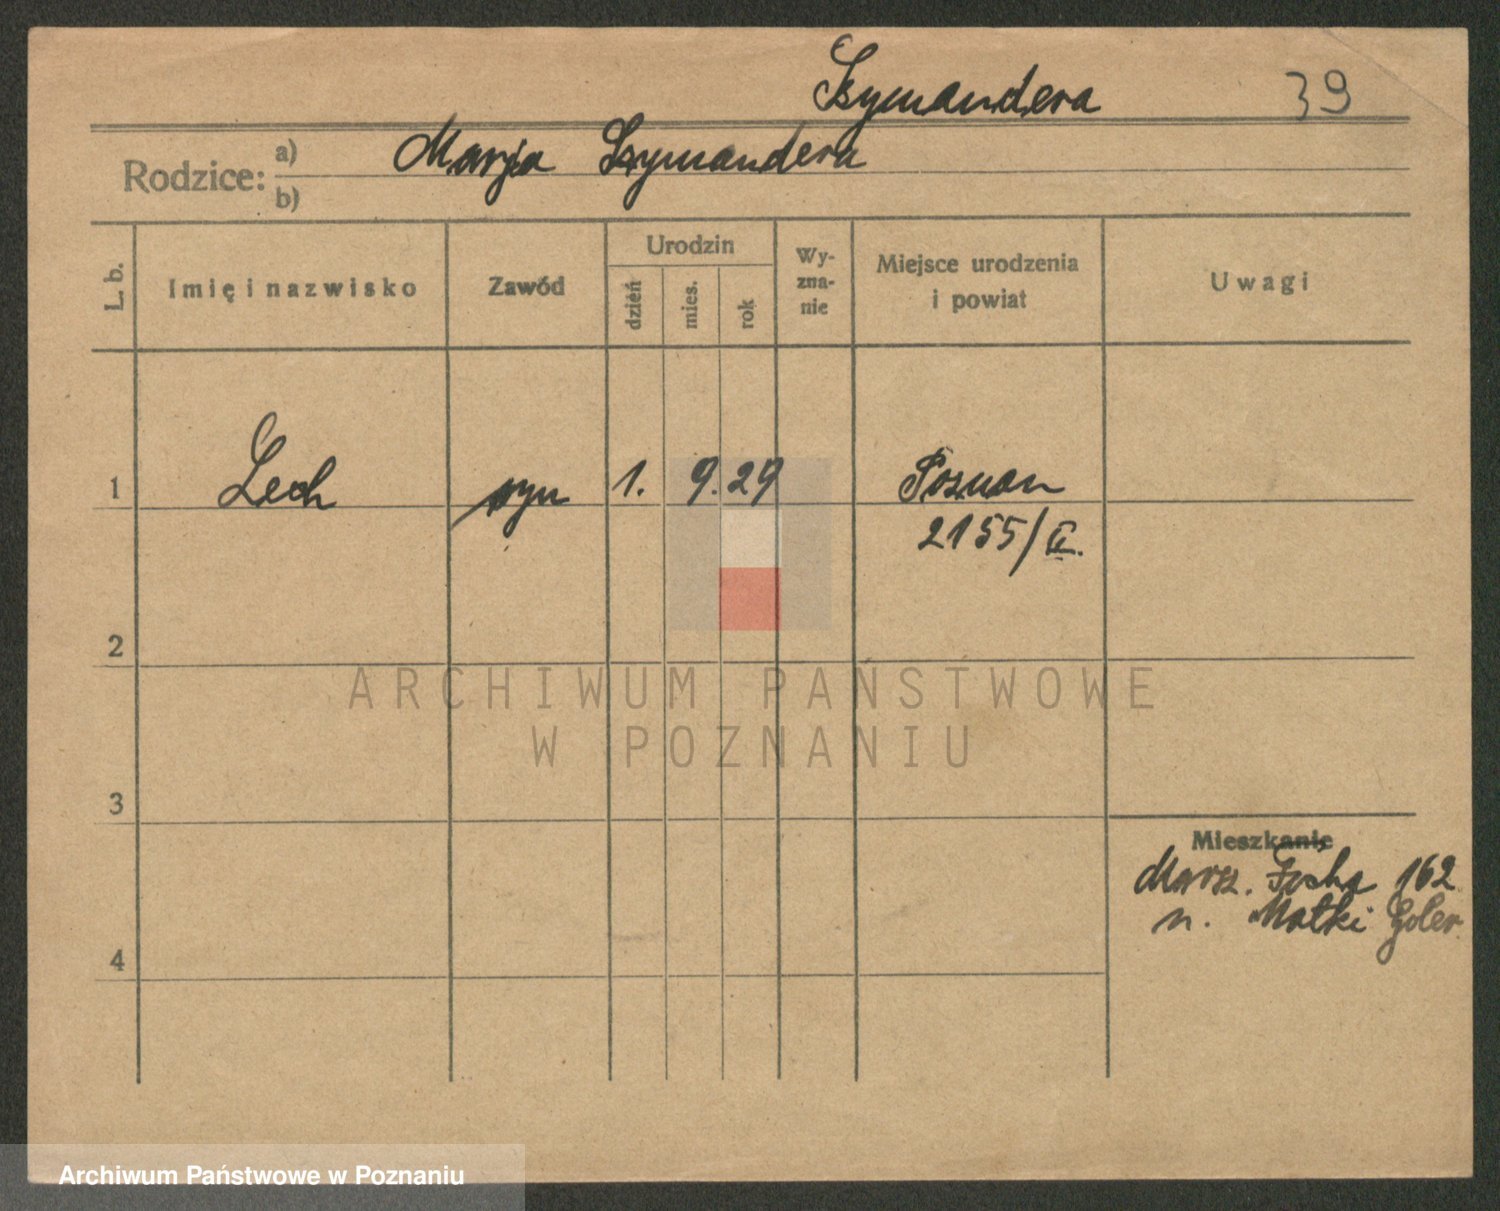 Szymandera 39
Rodzice: a) Marja Szymandera
b)
L. b. Imię i nazwisko Zawód Urodzin dzień mies. rok Wyzna- nie Miejsce urodzenia i powiat Uwagi
1 Lech syn 1. 9. 29 Poznan
2155/II.
2
ARCHIWUM PAŃSTWOWE
W POZNANIU
3
Mieszkanie
Marsz. Focha 162
4 n. Matki Goler
Archiwum Państwowe w Poznaniu